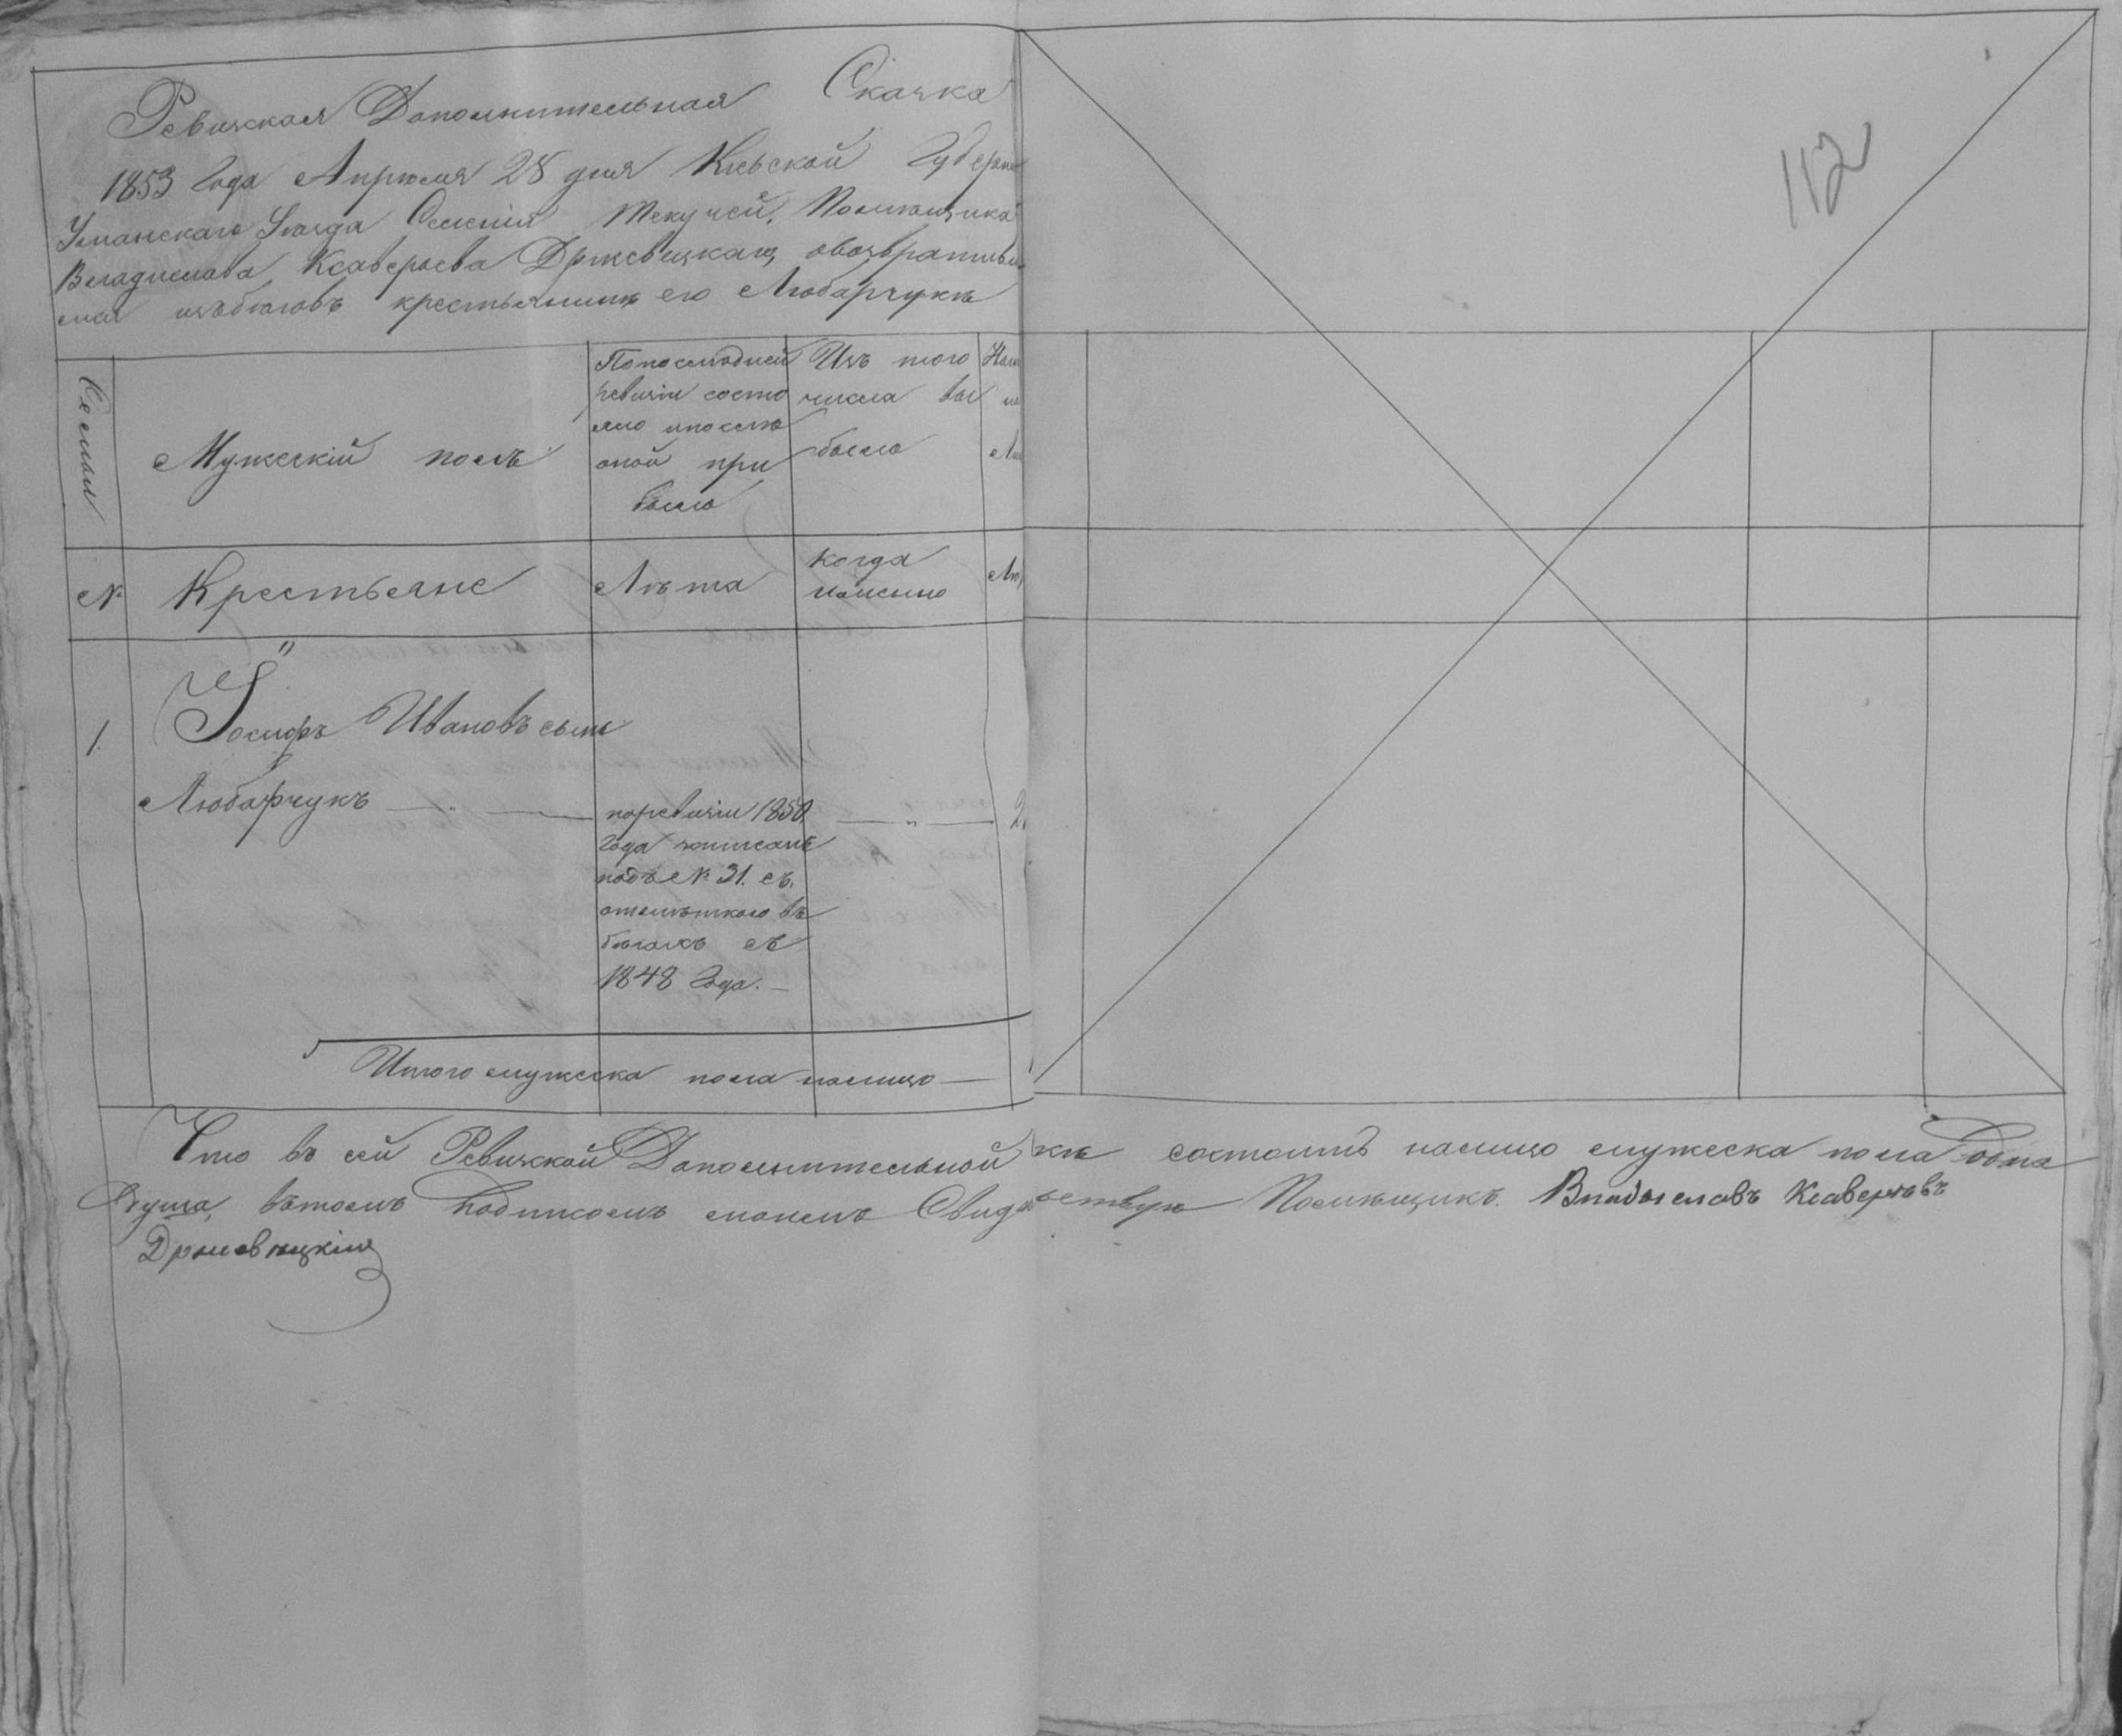 Ревизская Дополнительная Сказка
112
1853 Года Апреля 28 дня Кіевской Губерн
Уманскаго Уѣзда Селенія Текучей, Помѣщика
Владислава Ксаверьева Држевицкаго, овозврати
изъбѣговъ крестьянинѣ его Любарчукѣ
Семьи
Мужескій полъ
Попоследней
ревизіи состо
яло ипослѣ
оной при
было
Изъ того
числа вы
было
№
Крестьяне
Лѣта
Когда
именно
1.
Іосифъ Ивановъ сынъ
Любарчукъ — „ —
поревизіи 1850
Года записанъ
подъ № 31. съ
отмѣткою въ
бѣгахъ съ
1848 Года. —
— „ —
2
Итого мужеска пола налицо —
Что въ сей Ревизской Дополнительной кѣ состоитъ налицо мужеска пола одна
душа, вътомъ подписомъ моимъ Свидѣ ствую Помѣщикъ. Владыславъ Ксаверьевъ
Држевицкій